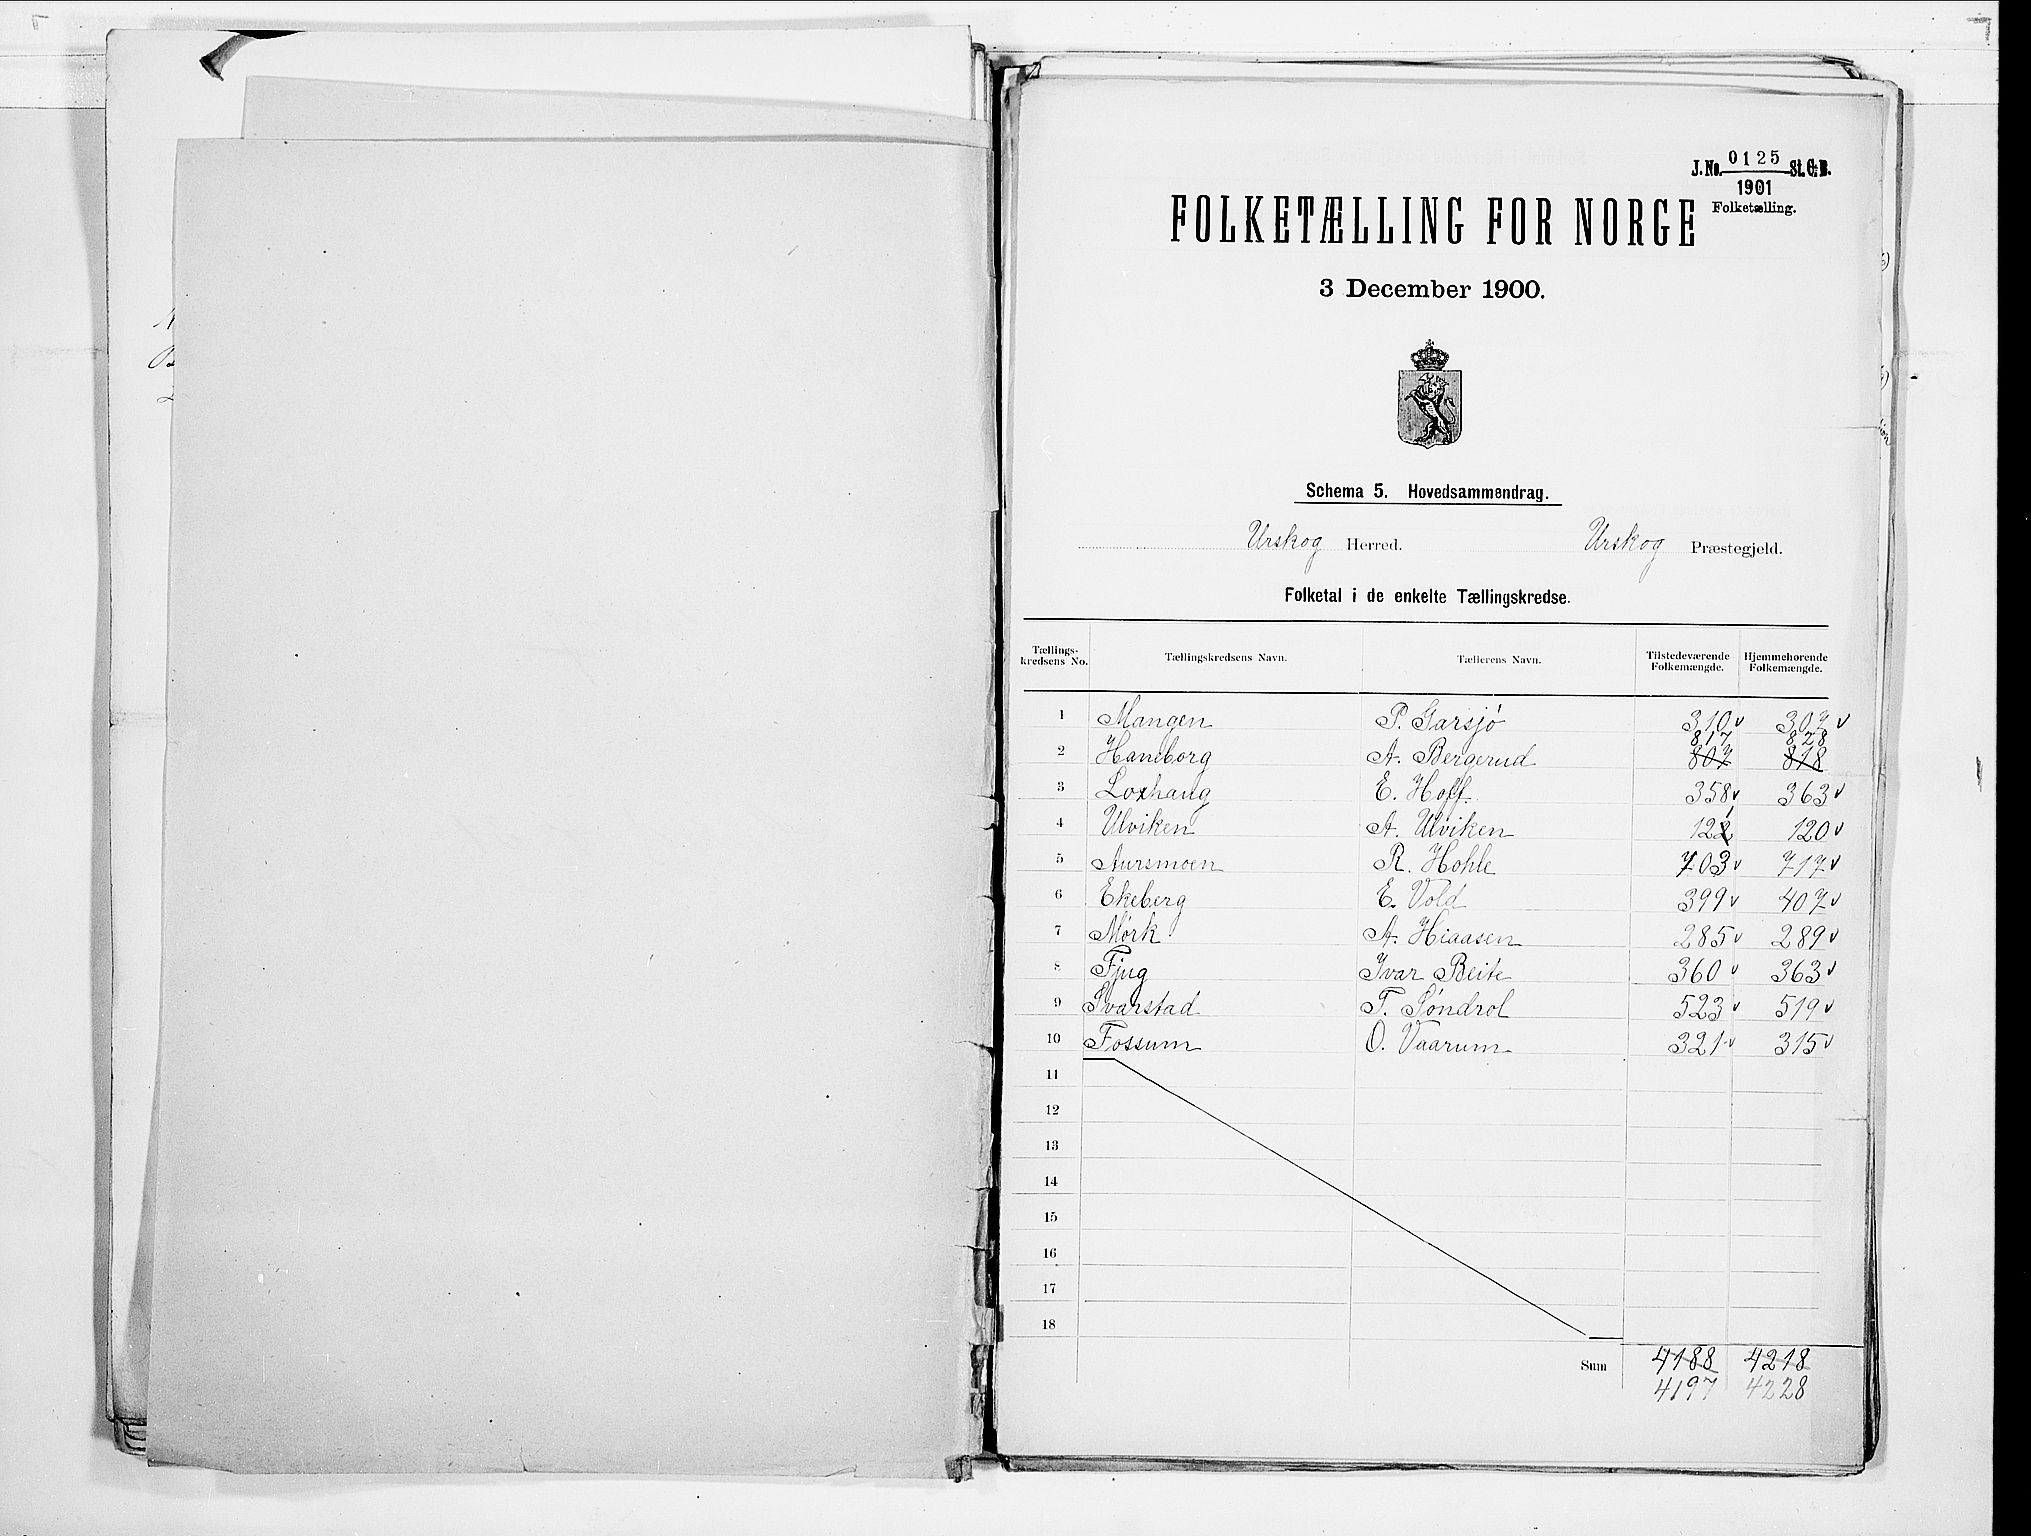 J. No. 0125 St. C. B.
1901
Folketælling.
FOLKETÆLLING FOR NORGE
3 December 1900.
Schema 5. Hovedsammendrag.
Urskog Herred. Urskog Præstegjeld.
Folketal i de enkelte Tællingskredse.
Tællings-kredsens No. Tællingskredsens Navn. Tællerens Navn. Tilstedeværende Folkemængde. Hjemmehørende Folkemængde.
1 Mangen P. Garsjø 310 v 307 v
817 828
2 Haneborg A. Bergerud 807 818
3 Loxhaug E. Hoff. 358 v 363 v
4 Ulviken A. Ulviken 121 120 v
5 Aursmoen R. Hohle 703 v 717 v
6 Ekeberg E. Vold 399 v 407 v
7 Mørk A. Hiaasen 285 v 289 v
8 Fjug Ivar Beite 360 v 363 v
9 Svarstad T. Søndrol 523 v 519 v
10 Fossum O. Vaarum 321 v 315 v
11
12
13
14
15
16
17
18
Sum 4188 4218
4197 4228